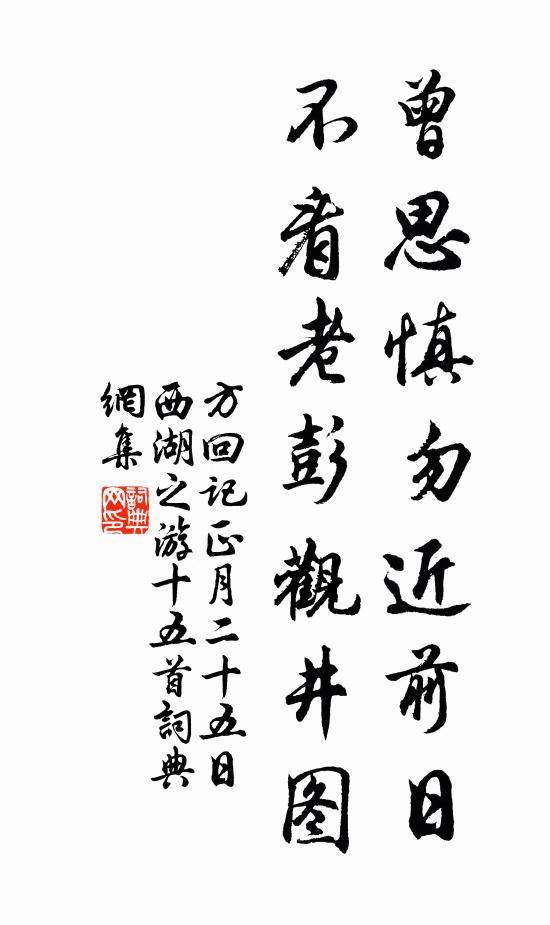 曾思慎勿近前日
不看老彭觀井图
方回记正月二十五日
西湖之游十五首詞典
網集
詞典
网印